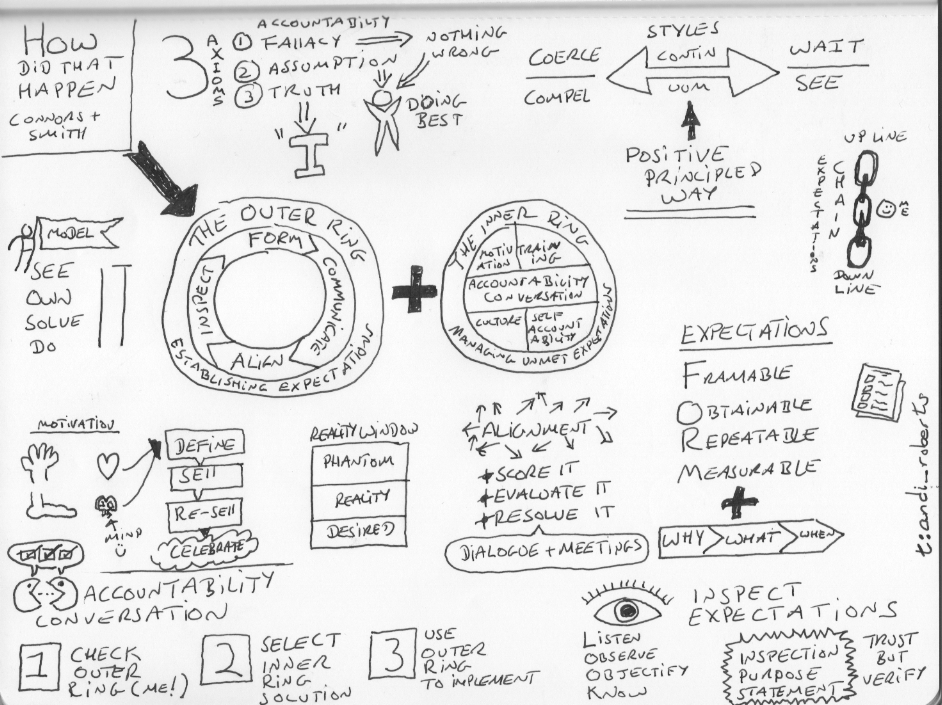 HOW
DID THAT
HAPPEN
CONNORS +
SMITH
3
AXIOMS
ACCOUNTABILTY
1 FALLACY
2 ASSUMPTION
3 TRUTH
NOTHING
WRONG
DOING
BEST
"I"
STYLES
COERLE
COMPEL
CONTIN
UUM
WAIT
SEE
POSITIVE
PRINCIPLED
WAY
UP LINE
EXPECTATIONS
CHAIN
ME
DOWN
LINE
MODEL
SEE
OWN
SOLVE
DO
IT
THE OUTER RING
FORM
COMMUNICATE
ALIGN
INSPECT
ESTABLISHING EXPECTATIONS
+
THE INNER RING
MOTIV
ATION
TRAIN
ING
ACCOUNTABILITY
CONVERSATION
CULTURE
SELF
ACCOUNT
ABILITY
MANAGING UNMET EXPECTATIONS
EXPECTATIONS
FRAMABLE
OBTAINABLE
REPEATABLE
MEASURABLE
+
WHY
WHAT
WHEN
t:andi_roberts
MOTIVATION
MIND
DEFINE
SELL
RE-SELL
CELEBRATE
REALITY WINDOW
PHANTOM
REALITY
DESIRED
ALIGNMENT
SCORE IT
EVALUATE IT
RESOLVE IT
DIALOGUE + MEETINGS
ACCOUNTABILITY
CONVERSATION
1
CHECK
OUTER
RING (ME!)
2
SELECT
INNER
RING
SOLUTION
3
USE
OUTER
RING
TO IMPLEMENT
INSPECT
EXPECTATIONS
LISTEN
OBSERVE
OBJECTIFY
KNOW
INSPECTION
PURPOSE
STATEMENT
TRUST
BUT
VERIFY